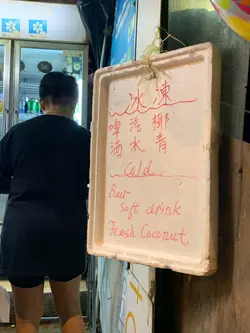 冰凍
啤酒
汽水
椰青
Cold
Beer
Soft drink
Fresh Coconut